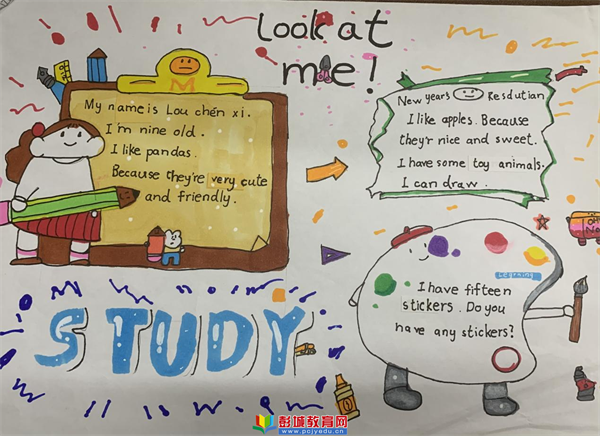 Look at
me!
M
My name is Lou chén xi.
I'm nine old.
I like pandas.
Because they're very cute
and friendly.
New years Resdutian
I like apples. Because
they'r nice and sweet.
I have some toy animals.
I can draw.
Learning
I have fifteen
stickers. Do you
have any stickers?
STUDY
彭城教育网
www.pcjyedu.cn